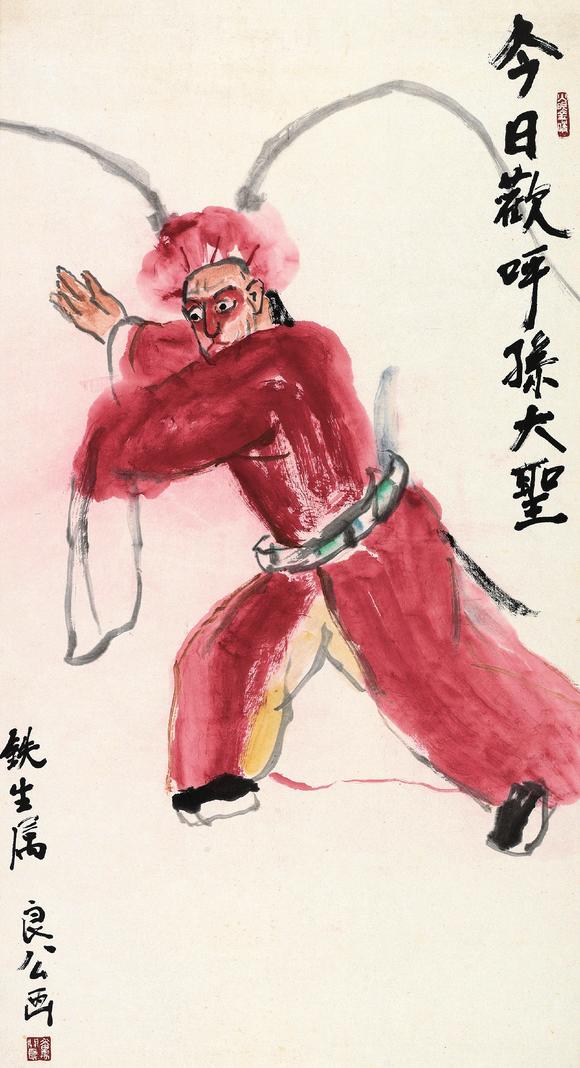 今日歡呼孫大聖
鉄生属
良公画